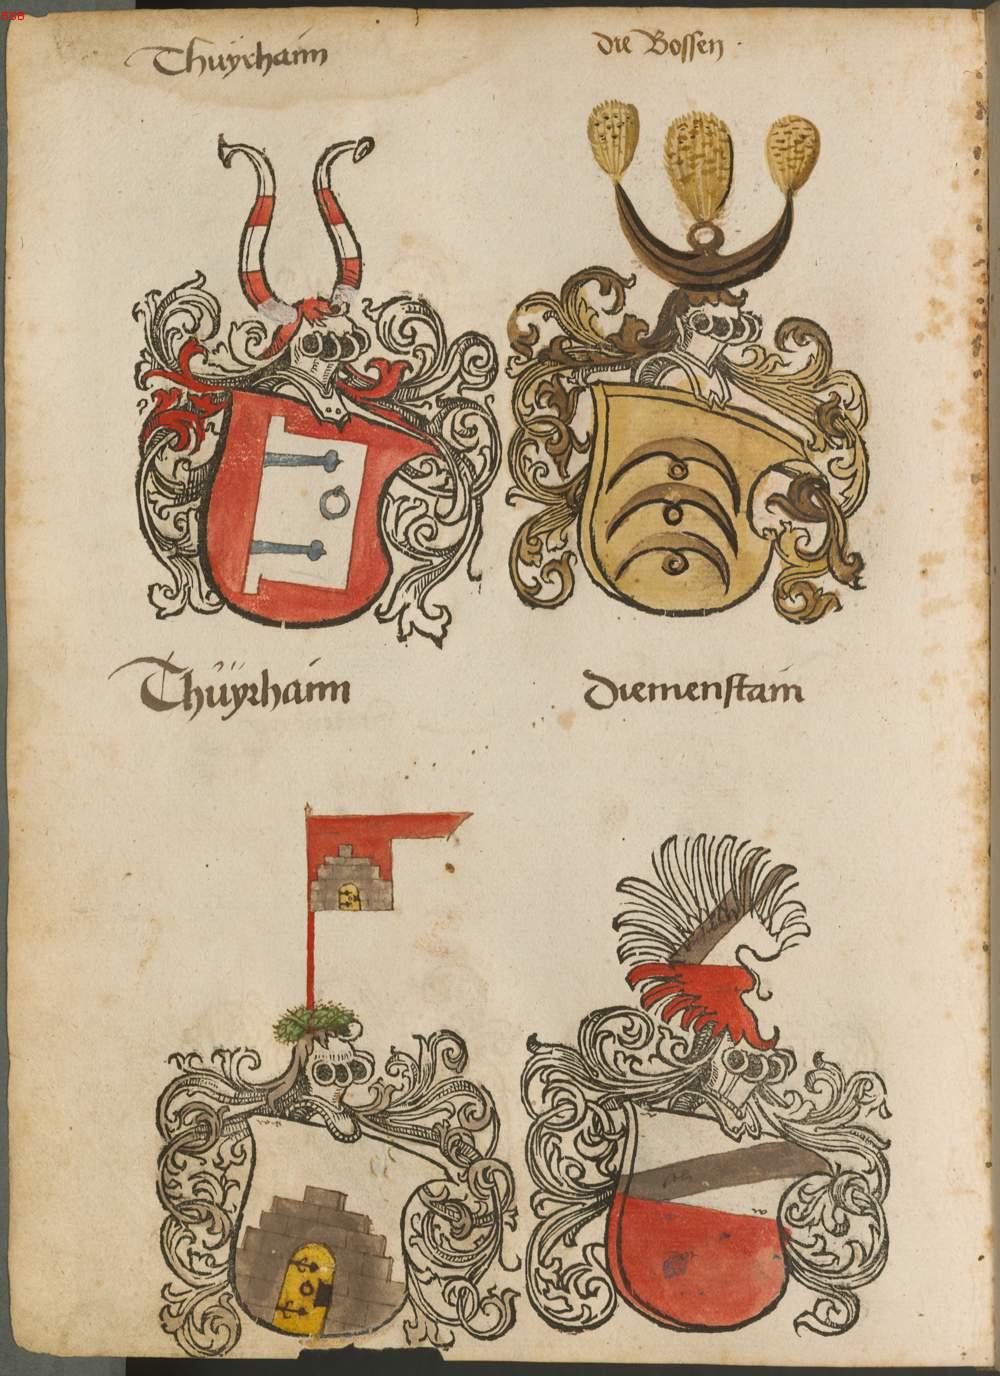 Thüÿrhaim
die Bossen ·
Thüÿrhaim
Diemenstain